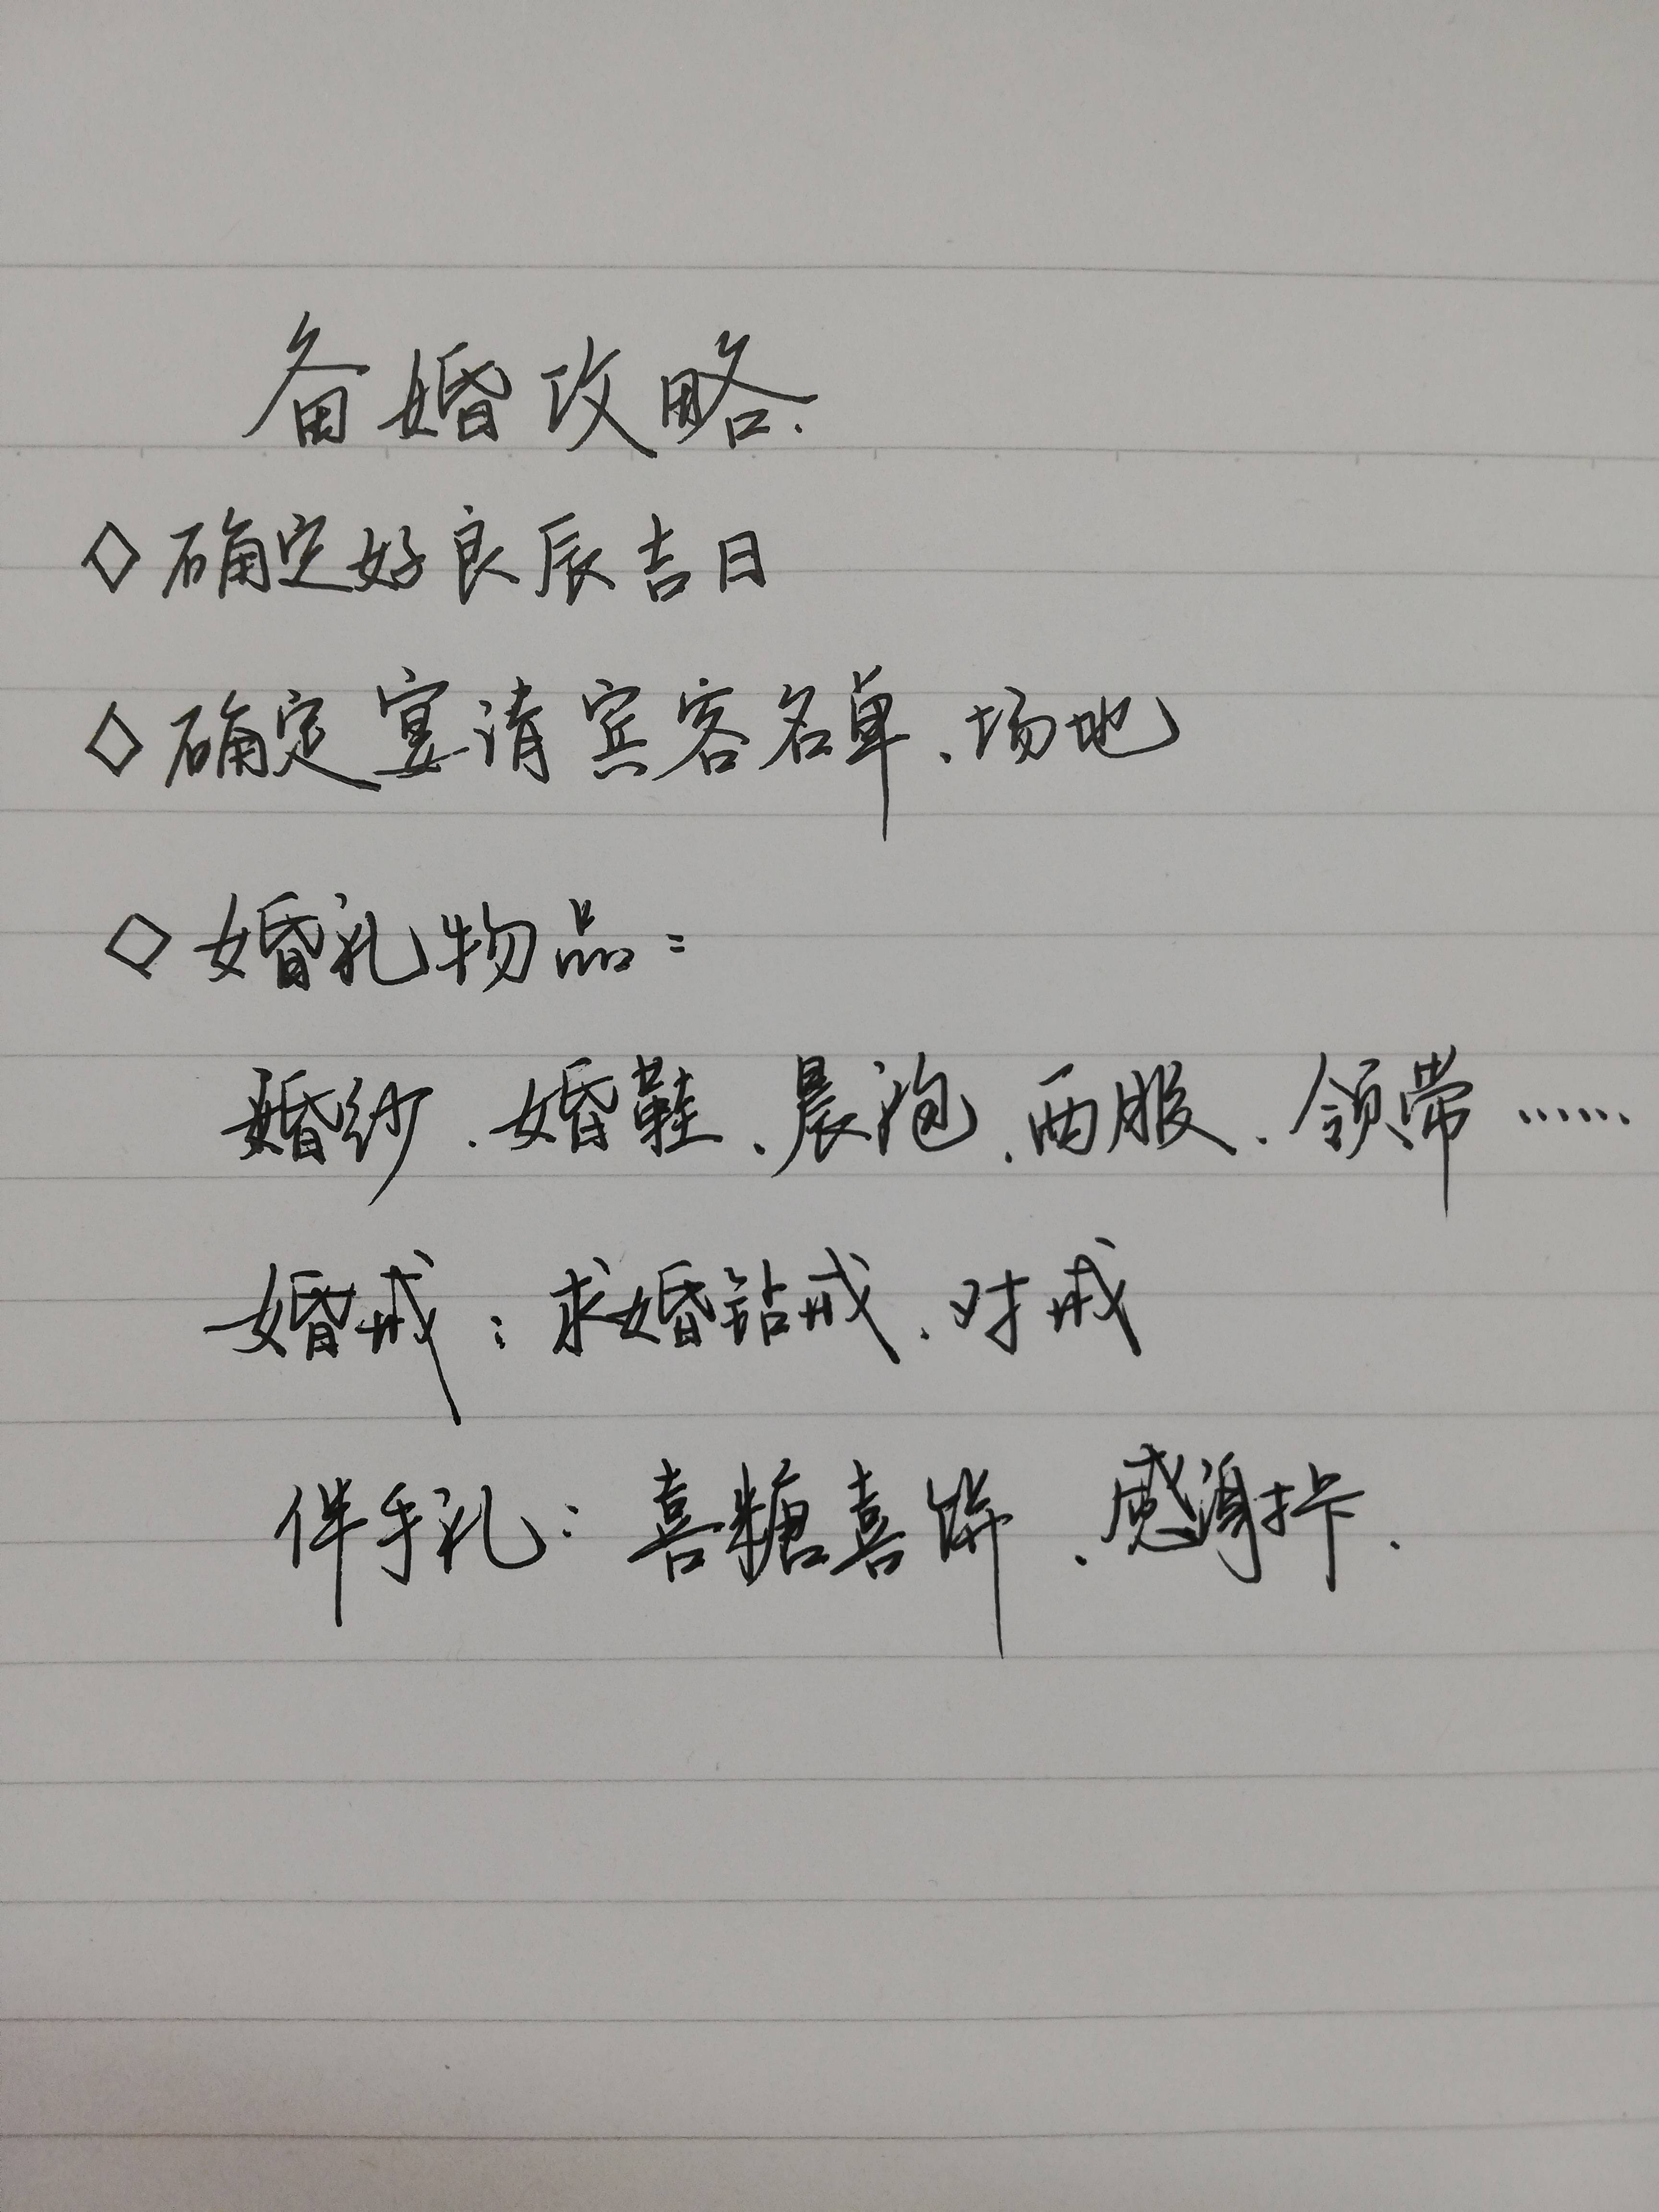 备婚攻略.
◇确定好良辰吉日
◇确定宴请宾客名单、场地
◇婚礼物品：
婚纱、婚鞋、晨袍、西服、领带……
婚戒：求婚钻戒、对戒
伴手礼：喜糖喜饼、感谢卡.